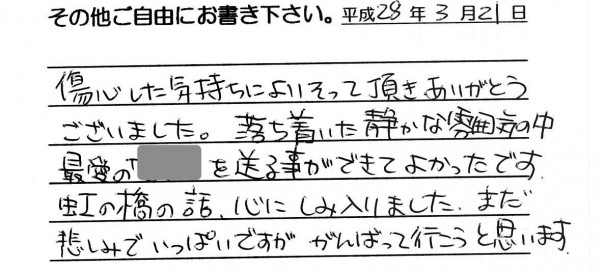 その他ご自由にお書き下さい。平成28年3月21日
傷心した気持ちによりそって頂きありがとう
ございました。落ち着いた静かな雰囲気の中
最愛の「を送る事ができてよかったです。
虹の橋の話、心にしみ入りました。まだ
悲しみでいっぱいですががんばって行こうと思います。